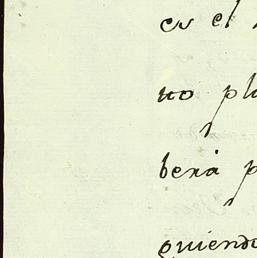 es el
no pl
berá p
quiend